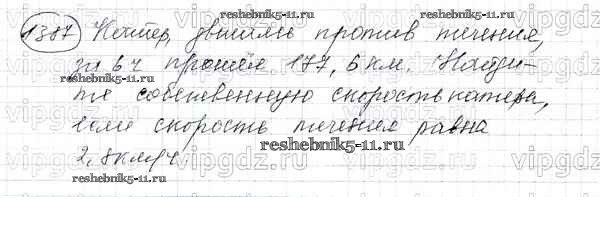 1387 Катер, двигаясь против течения,
за 6 ч прошёл 177,6 км. Найди-
те собственную скорость катера,
если скорость течения равна
2,8 км/ч
reshebnik5-11.ru
reshebnik5-11.ru
reshebnik5-11.ru
reshebnik5-11.ru
reshebnik5-11.ru
vipgdz.ru vipgdz.ru
vipgdz.ru